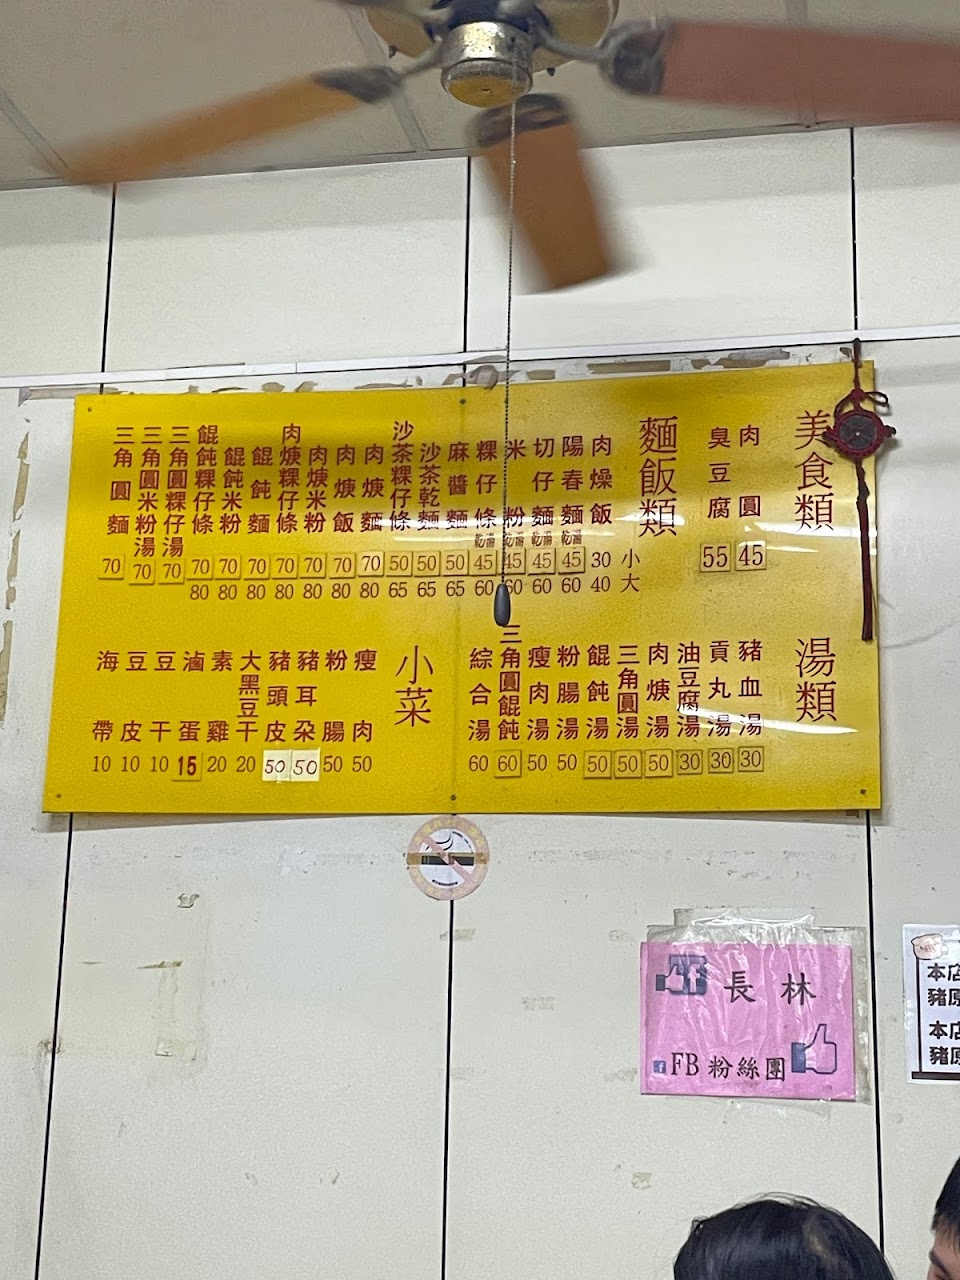 美食類
肉圓 45
臭豆腐 55
麵飯類
小 大
肉燥飯 30 40
陽春麵 乾湯 45 60
切仔麵 乾湯 45 60
米粉 乾湯 45 60
粿仔條 乾湯 45 60
麻醬麵 50 65
沙茶乾麵 50 65
沙茶粿仔條 50 65
肉焿麵 70 80
肉焿飯 70 80
肉焿米粉 70 80
肉焿粿仔條 70 80
餛飩麵 70 80
餛飩米粉 70 80
餛飩粿仔條 70 80
三角圓粿仔湯 70
三角圓米粉湯 70
三角圓麵 70
湯類
豬血湯 30
貢丸湯 30
油豆腐湯 30
肉焿湯 50
三角圓湯 50
餛飩湯 50
粉腸湯 50
瘦肉湯 50
三角圓餛飩 60
綜合湯 60
小菜
瘦肉 50
粉腸 50
豬耳朵 50
豬頭皮 50
大黑豆干 20
素雞 20
滷蛋 15
豆干 10
豆皮 10
海帶 10
長林
FB 粉絲團
本店
豬原
本店
豬原